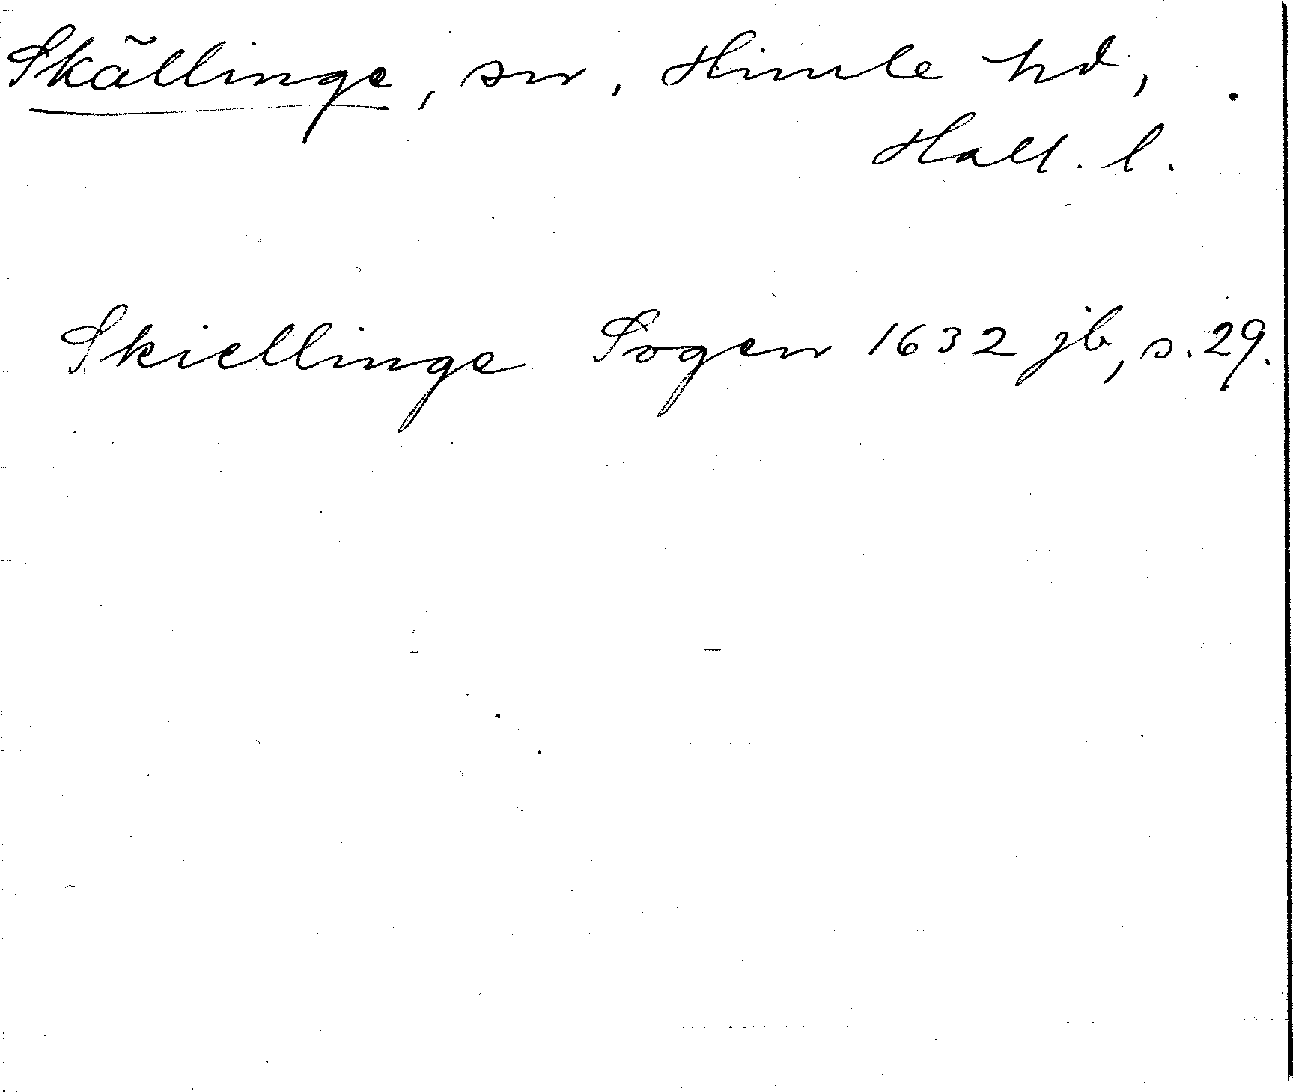 Skällinge, sn, Himle hd,
Hall. l.
Skiellinge Sogen 1632 jb, s. 29.